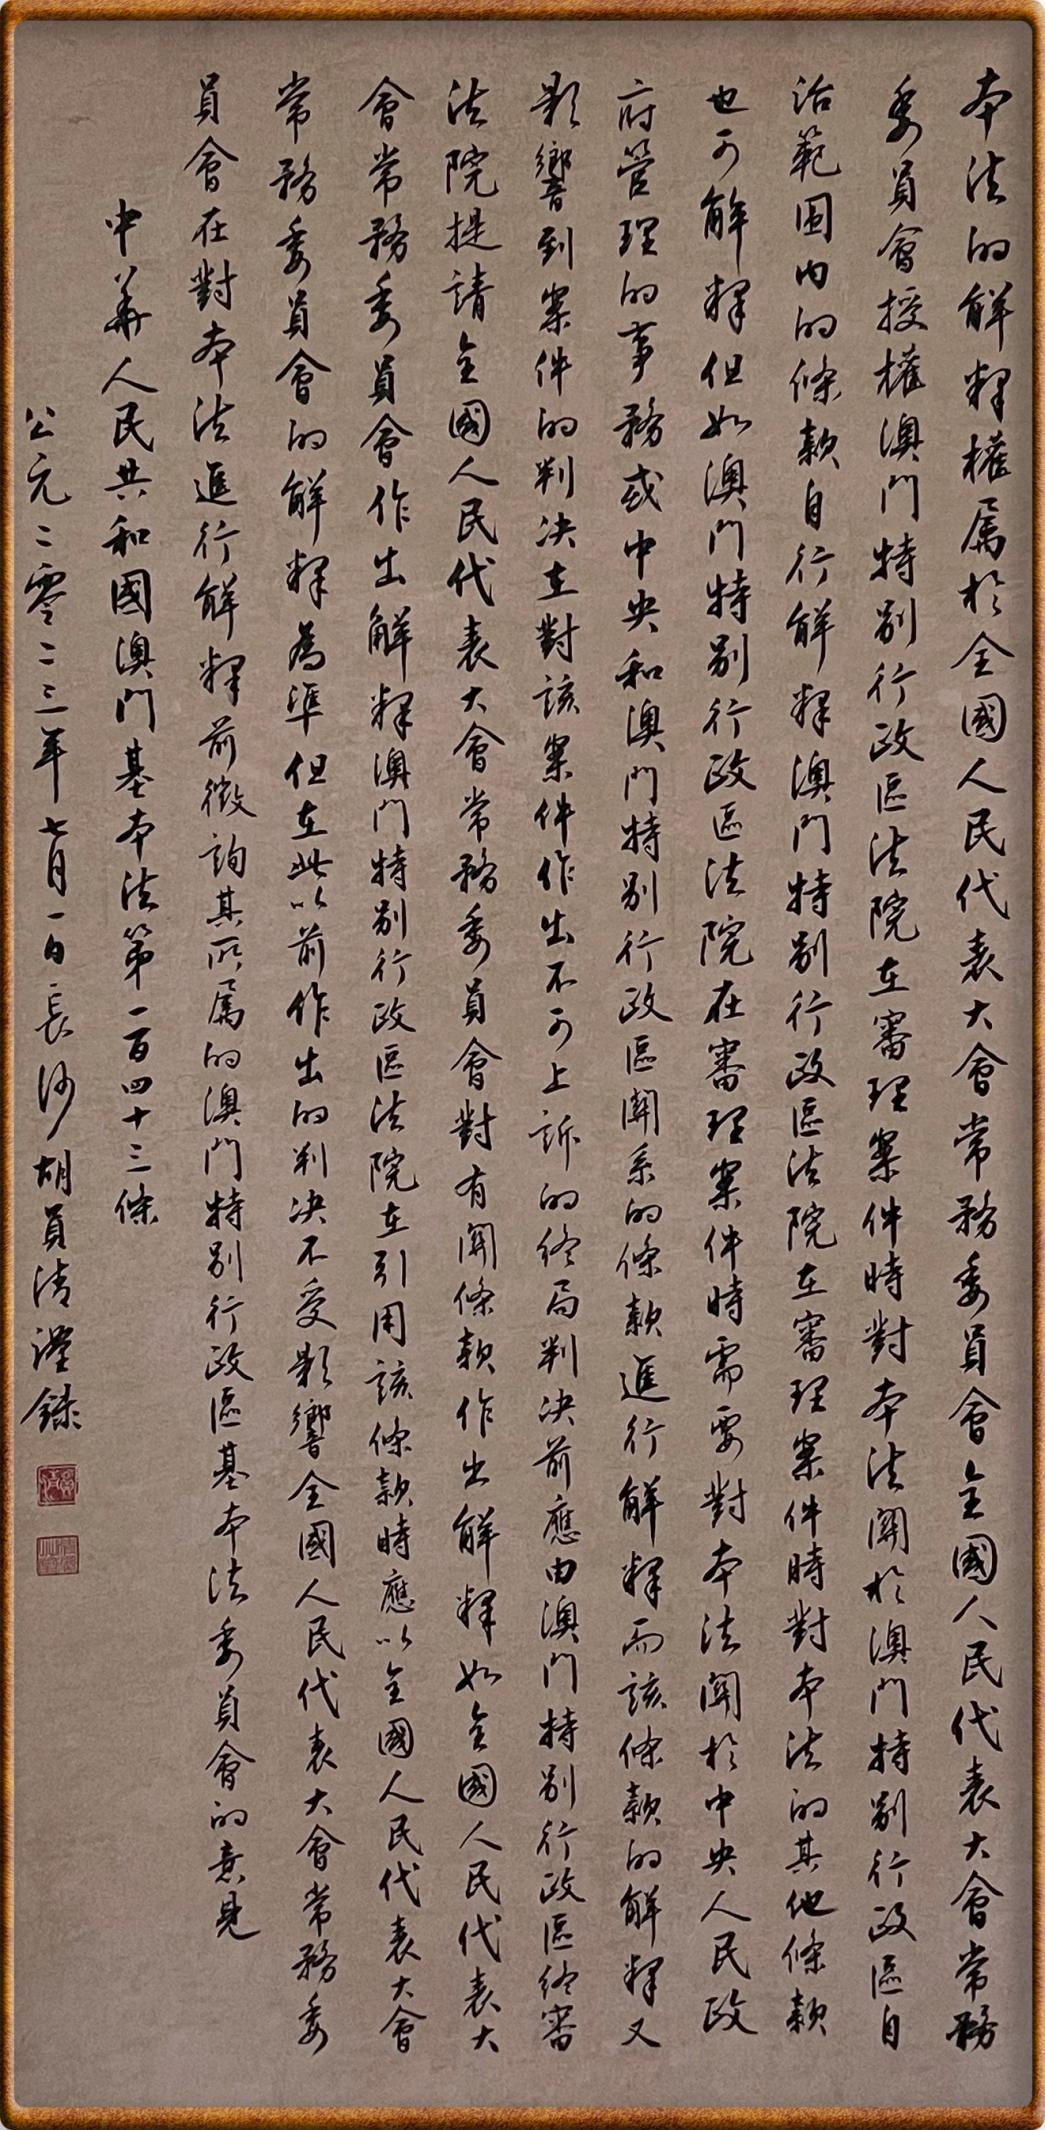 本法的解釋權屬於全國人民代表大會常務委員會全國人民代表大會常務
委員會授權澳門特別行政區法院在審理案件時對本法關於澳門特別行政區自
治範圍內的條款自行解釋澳門特別行政區法院在審理案件時對本法的其他條款
也可解釋但如澳門特別行政區法院在審理案件時需要對本法關於中央人民政
府管理的事務或中央和澳門特別行政區關係的條款進行解釋而該條款的解釋又
影響到案件的判决在對該案件作出不可上訴的終局判决前應由澳門特別行政區終審
法院提請全國人民代表大會常務委員會對有關條款作出解釋如全國人民代表大
會常務委員會作出解釋澳門特別行政區法院在引用該條款時應以全國人民代表大會
常務委員會的解釋爲準但在此以前作出的判决不受影響全國人民代表大會常務委
員會在對本法進行解釋前徵詢其所屬的澳門特別行政區基本法委員會的意見
中華人民共和國澳門基本法第一百四十三條
公元二零二三年七月一日長沙胡員清謹錄